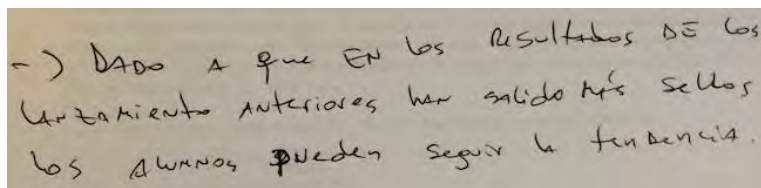 -) DADO A que EN los Resultados DE los
lanzamiento Anteriores han salido más sellos
los Alumnos pueden seguir la tendencia.